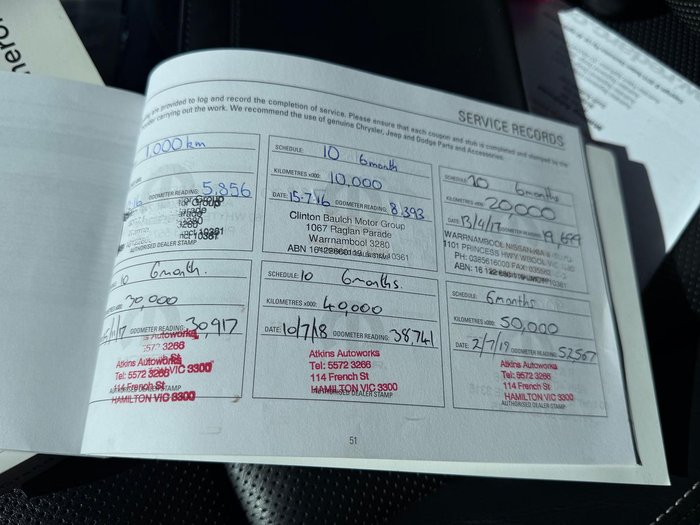 SERVICE RECORDS
are provided to log and record the completion of service. Please ensure that each coupon and stub is completed and stamped by the
carrying out the work. We recommend the use of genuine Chrysler, Jeep and Dodge Parts and Accessories.
1,000km
ODOMETER READING: 5,856
AUTHORISED DEALER STAMP
SCHEDULE: 10 6month
KILOMETRES x000: 10,000
DATE: 15.7.16 ODOMETER READING: 8,393
Clinton Baulch Motor Group
1067 Raglan Parade
Warrnambool 3280
SCHEDULE: 10 6months
KILOMETRES x000: 20,000
DATE: 13/4/17 ODOMETER READING: 19,699
WARRNAMBOOL NISSAN
1101 PRINCESS HWY W'BOOL VIC
10 6month.
30,000
11/17 ODOMETER READING: 30,917
Atkins Autoworks
Tel: 5572 3266
114 French St
HAMILTON VIC 3300
SCHEDULE: 10 6months.
KILOMETRES x000: 40,000
DATE: 10/7/18 ODOMETER READING: 38741
Atkins Autoworks
Tel: 5572 3266
114 French St
HAMILTON VIC 3300
AUTHORISED DEALER STAMP
SCHEDULE: 6months
KILOMETRES x000: 50,000
DATE: 2/7/19 ODOMETER READING: 52567
Atkins Autoworks
Tel: 5572 3266
114 French St
HAMILTON VIC 3300
AUTHORISED DEALER STAMP
51